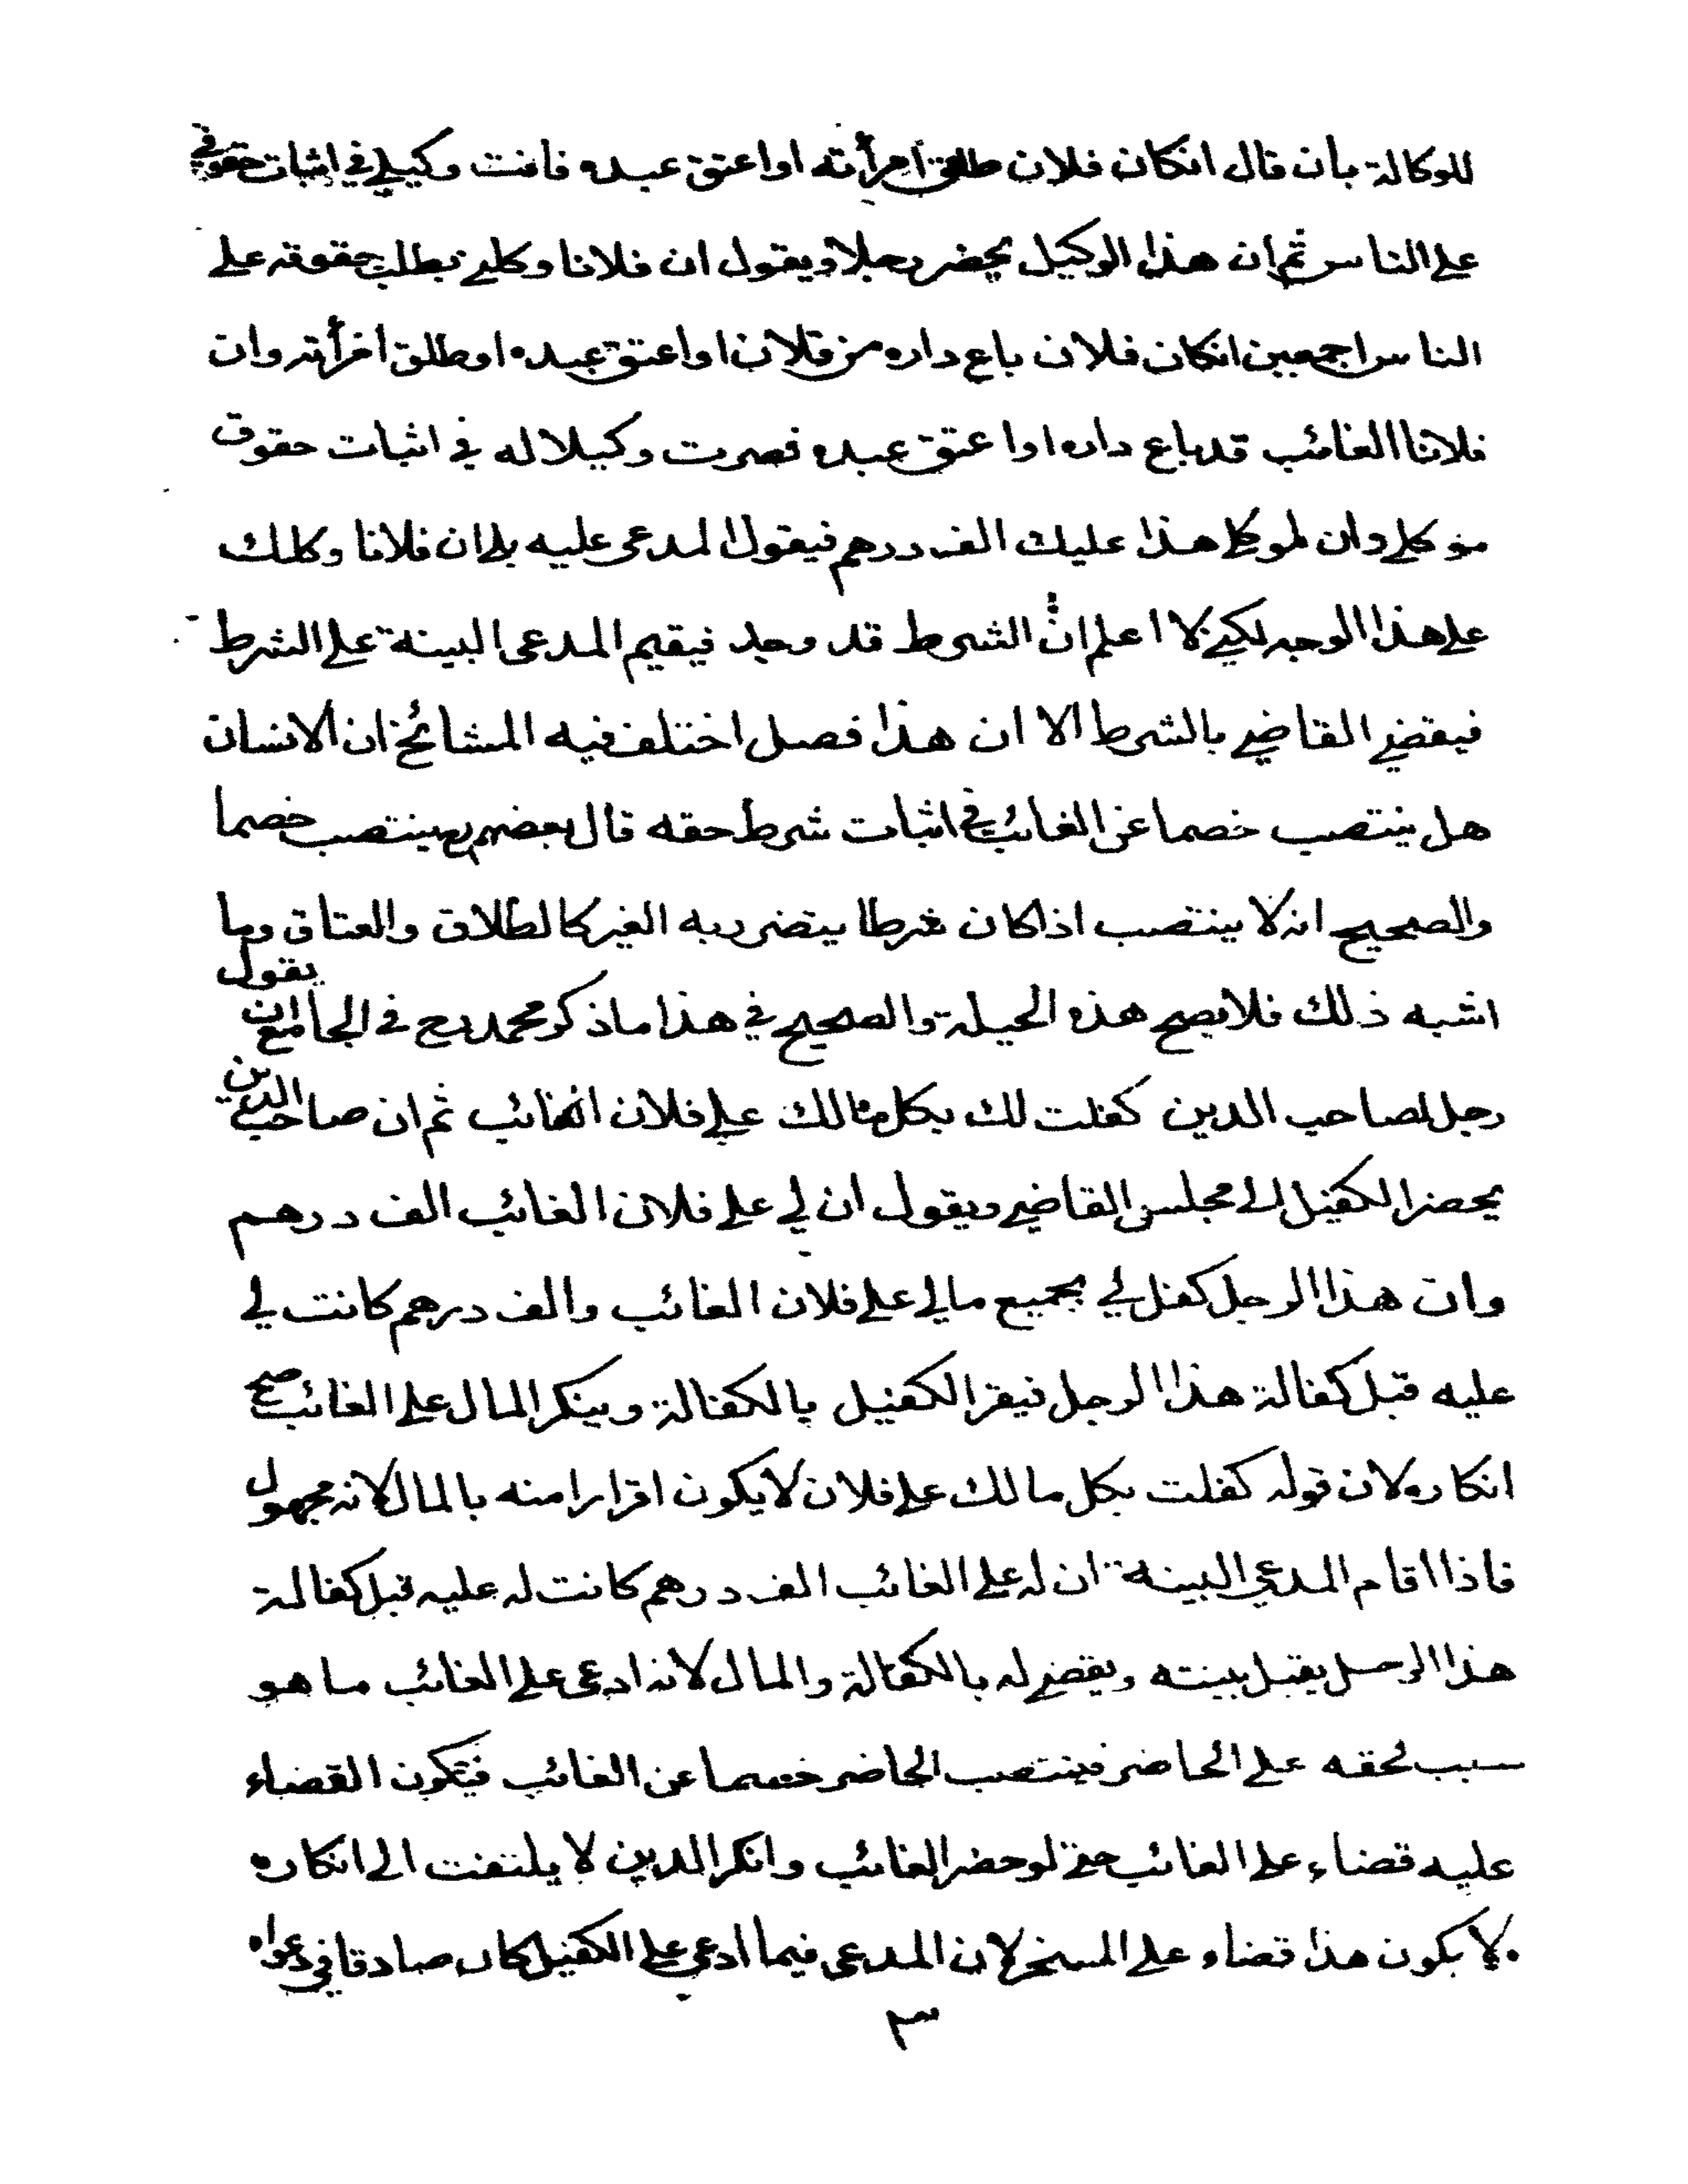 للوكالة بأن قال انكان فلان طلق امرأته او اعتق عبده فانت وكيلي في اثبات حقوقي
على الناس ثم ان هذا الوكيل يحضر رجلا ويقول ان فلانا وكلني بطلب حقوقه على
الناس اجمعين انكان فلان باع داره من فلان او اعتق عبده او طلق امرأته وان
فلانا الغائب قد باع داره او اعتق عبده فصرت وكيلا له في اثبات حقوق
موكلي وان لموكلي هذا عليك الف درهم فيقول المدعى عليه بلى ان فلانا وكلك
على هذا الوجه لكني لا اعلم ان الشرط قد وجد فيقيم المدعي البينة على الشرط
فيقضي القاضي بالشرط الا ان هذا فصل اختلف فيه المشائخ ان الانسان
هل ينتصب خصما عن الغائب في اثبات شرط حقه قال بعضهم ينتصب خصما
والصحيح انه لا ينتصب اذا كان شرطا يتضرر به الغير كالطلاق والعتاق وما
اشبه ذلك فلا تصح هذه الحيلة والصحيح في هذا ما ذكر محمد رح في الجامع ان يقول
رجل لصاحب الدين كفلت لك بكل مالك على فلان الغائب ثم ان صاحب الدين
يحضر الكفيل الى مجلس القاضي ويقول ان لي على فلان الغائب الف درهم
وان هذا الرجل كفل لي بجميع مالي على فلان الغائب والف درهم كانت لي
عليه قبل كفالة هذا الرجل فيقر الكفيل بالكفالة وينكر المال على الغائب صح
انكاره لان قوله كفلت بكل مالك على فلان لا يكون اقرارا منه بالمال لانه مجهول
فاذا اقام المدعي البينة ان له على الغائب الف درهم كانت له عليه قبل كفالة
هذا الرجل يقبل بينته ويقضى له بالكفالة والمال لانه ادعى على الغائب ما هو
سبب لحقه على الحاضر فينتصب الحاضر خصما عن الغائب فيكون القضاء
عليه قضاء على الغائب حتى لو حضر الغائب وانكر الدين لا يلتفت الى انكاره
ولا يكون هذا قضاء على المسخر لان المدعي فيما ادعى على الكفيل كان صادقا في دعواه
٣